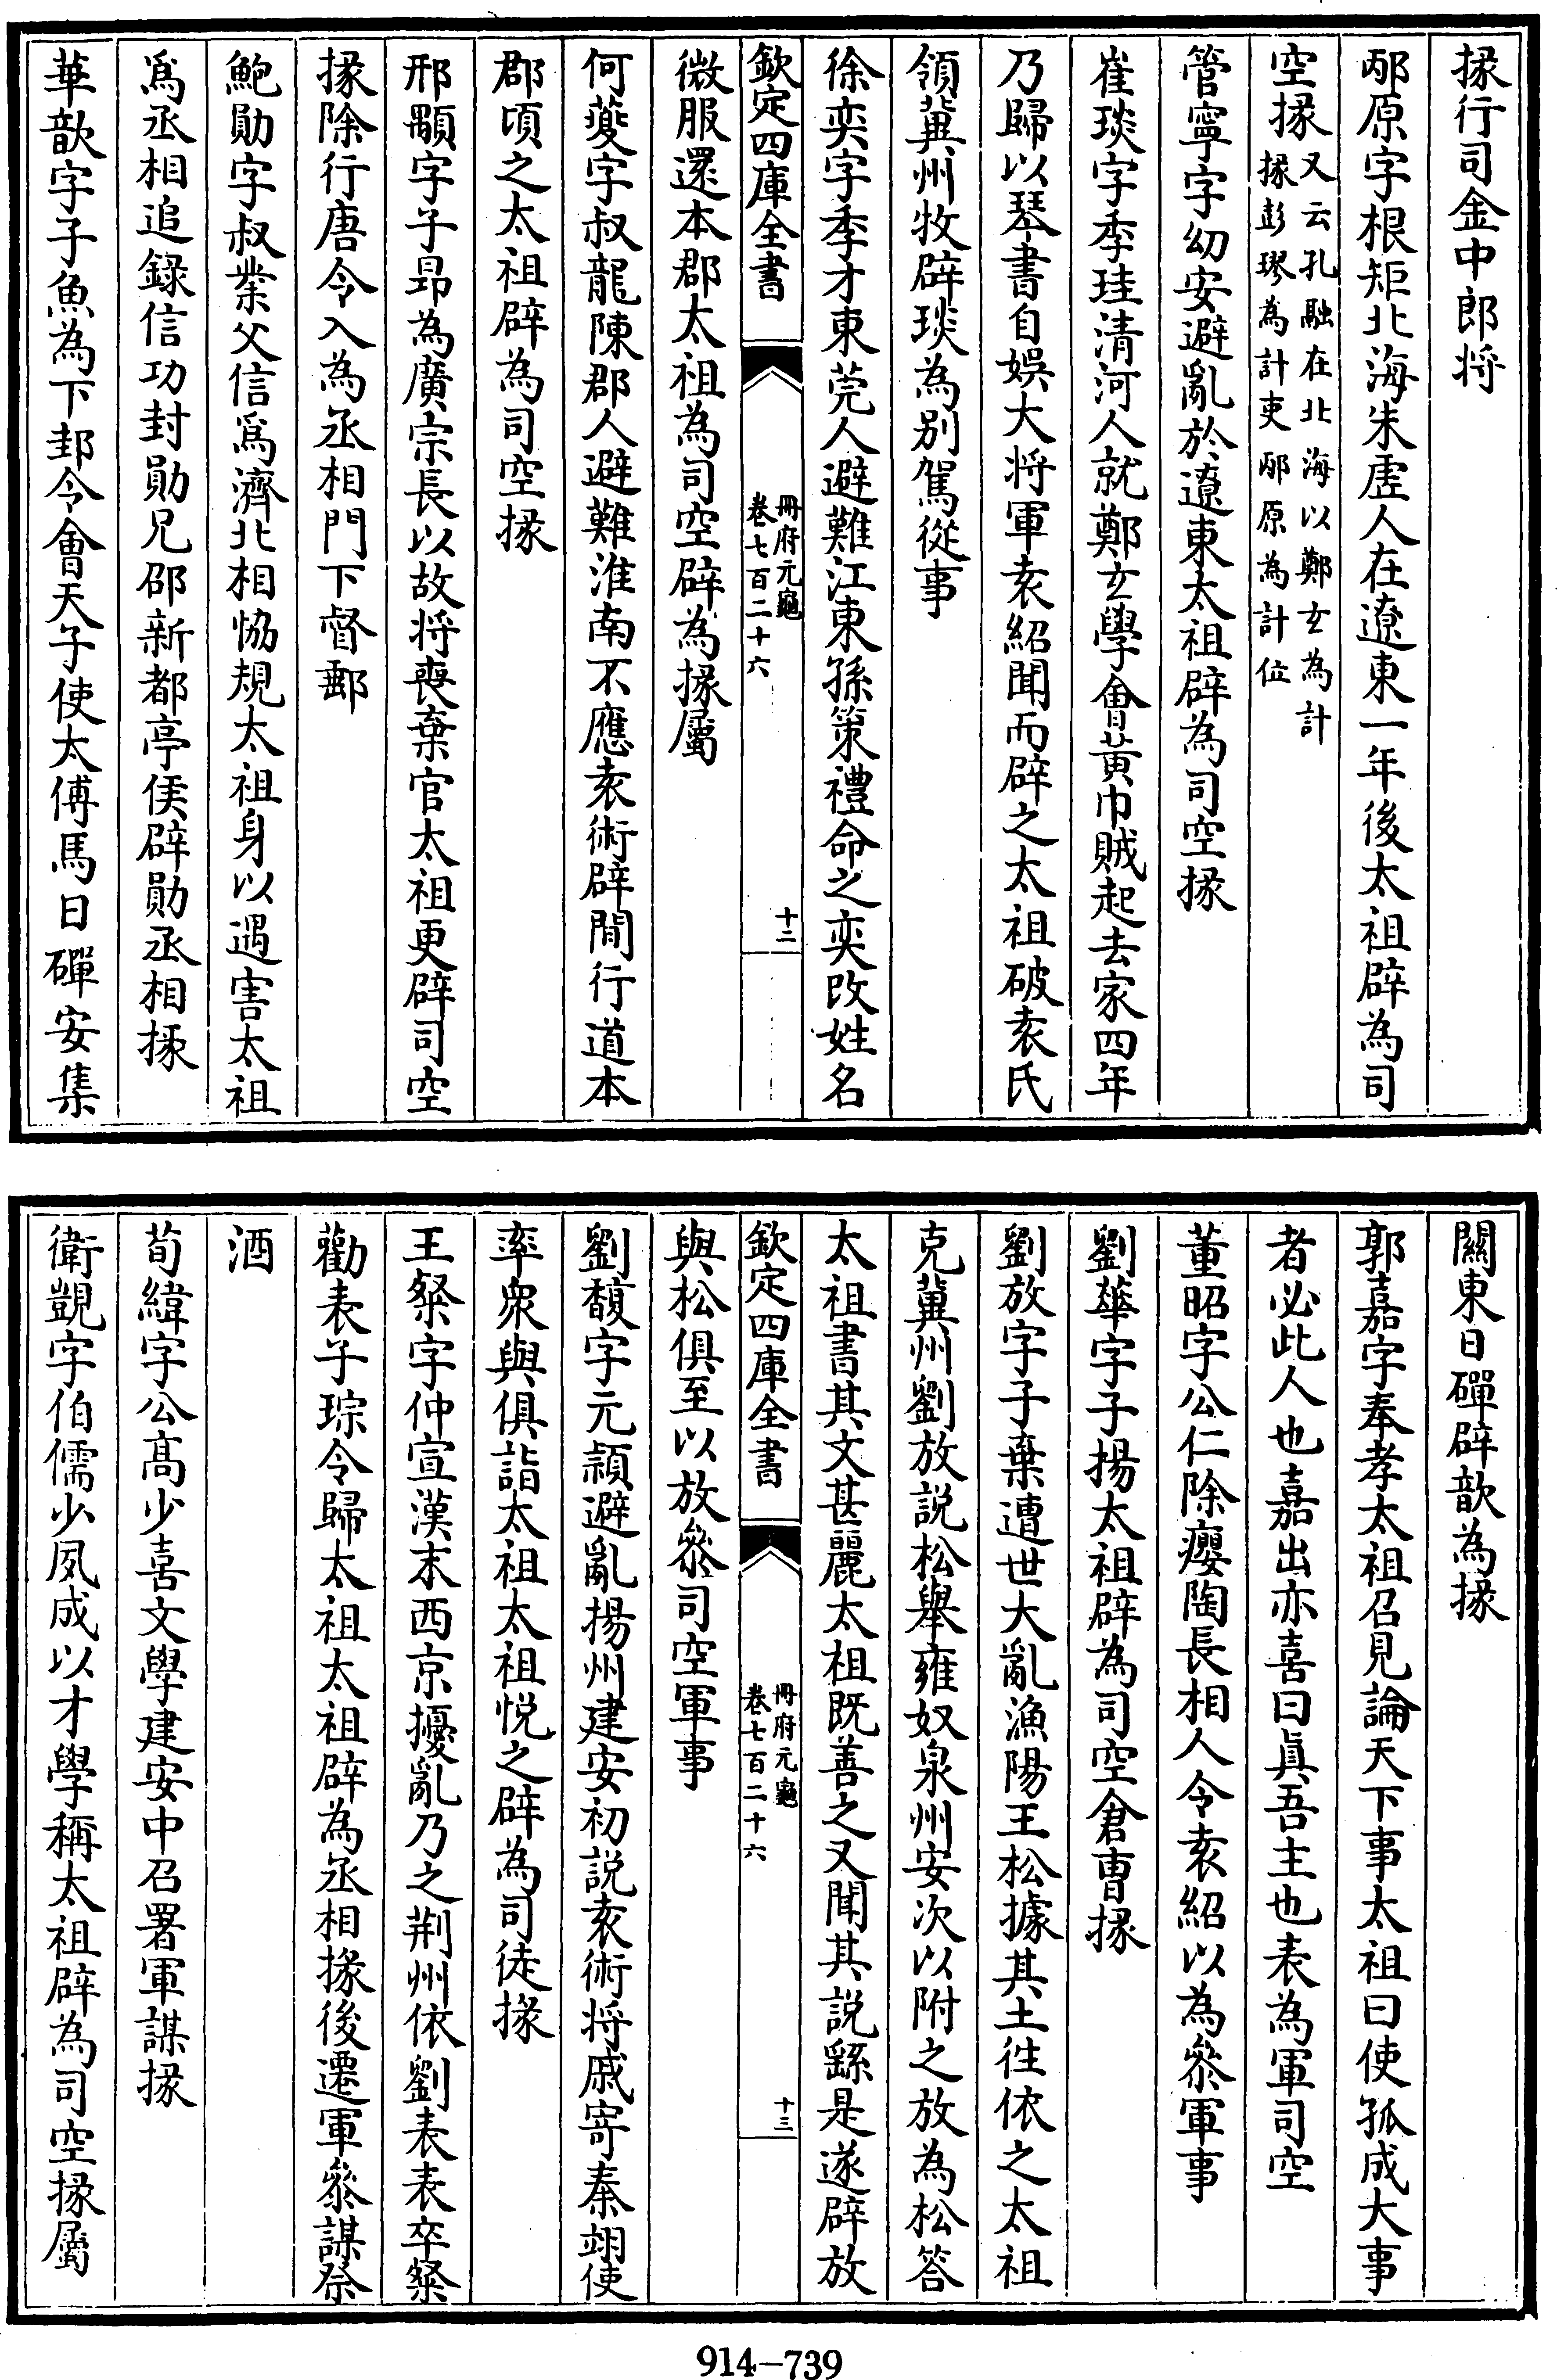 掾行司金中郎将
邴原字根矩北海朱虛人在遼東一年後太祖辟為司
空掾又云孔融在北海以鄭玄為計
掾彭璆為計吏邴原為計位
管寧字幼安避亂於遼東太祖辟為司空掾
崔琰字季珪清河人就鄭玄學會黃巾賊起去家四年
乃歸以琴書自娛大将軍袁紹聞而辟之太祖破袁氏
領冀州牧辟琰為别駕從事
徐奕字季才東莞人避難江東孫策禮命之奕改姓名
欽定四庫全書
冊府元龜
卷七百二十六
十二
微服還本郡太祖為司空辟為掾屬
何夔字叔龍陳郡人避難淮南不應袁術辟間行道本
郡頃之太祖辟為司空掾
邢顒字子昻為廣宗長以故将喪棄官太祖更辟司空
掾除行唐令入為丞相門下督郵
鮑勛字叔業父信爲濟北相協規太祖身以遇害太祖
爲丞相追錄信功封勛兄邵新都亭侯辟勛丞相掾
華歆字子魚為下邽令會天子使太傅馬日磾安集
關東日磾辟歆為掾
郭嘉字奉孝太祖召見論天下事太祖曰使孤成大事
者必此人也嘉出亦喜曰眞吾主也表為軍司空
董昭字公仁除癭陶長相人令袁紹以為叅軍事
劉曅字子揚太祖辟為司空倉曹掾
劉放字子棄遭世大亂漁陽王松據其土徃依之太祖
克冀州劉放説松舉雍奴泉州安次以附之放為松答
太祖書其文甚麗太祖既善之又聞其説繇是遂辟放
欽定四庫全書
冊府元龜
卷七百二十六
十三
與松俱至以放叅司空軍事
劉馥字元潁避亂揚州建安初説袁術将戚寄秦翊使
率衆與俱詣太祖太祖悦之辟為司徒掾
王粲字仲宣漢末西京擾亂乃之荆州依劉表表卒粲
勸表子琮令歸太祖太祖辟為丞相掾後遷軍叅謀祭
酒
荀緯字公髙少喜文學建安中召署軍謀掾
衛覬字伯儒少夙成以才學稱太祖辟為司空掾屬
914—739